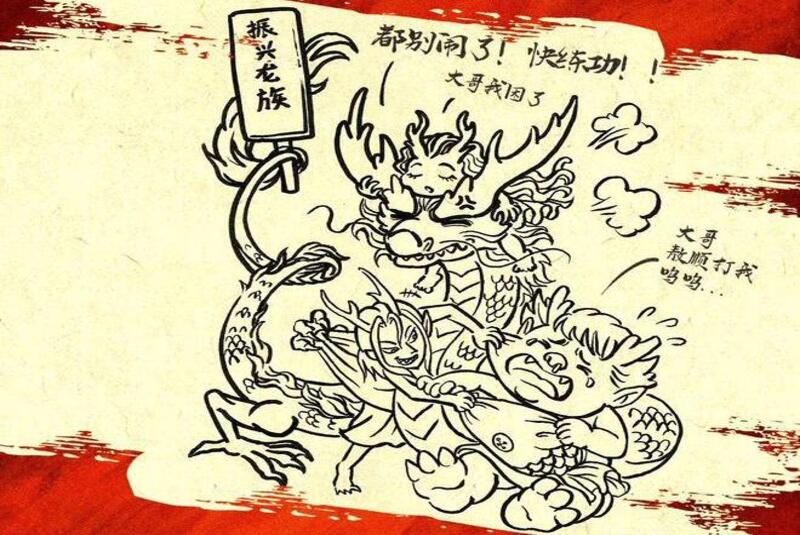 振兴龙族
都别闹了！快练功！！
大哥我困了
大哥
敖顺打我
呜呜...